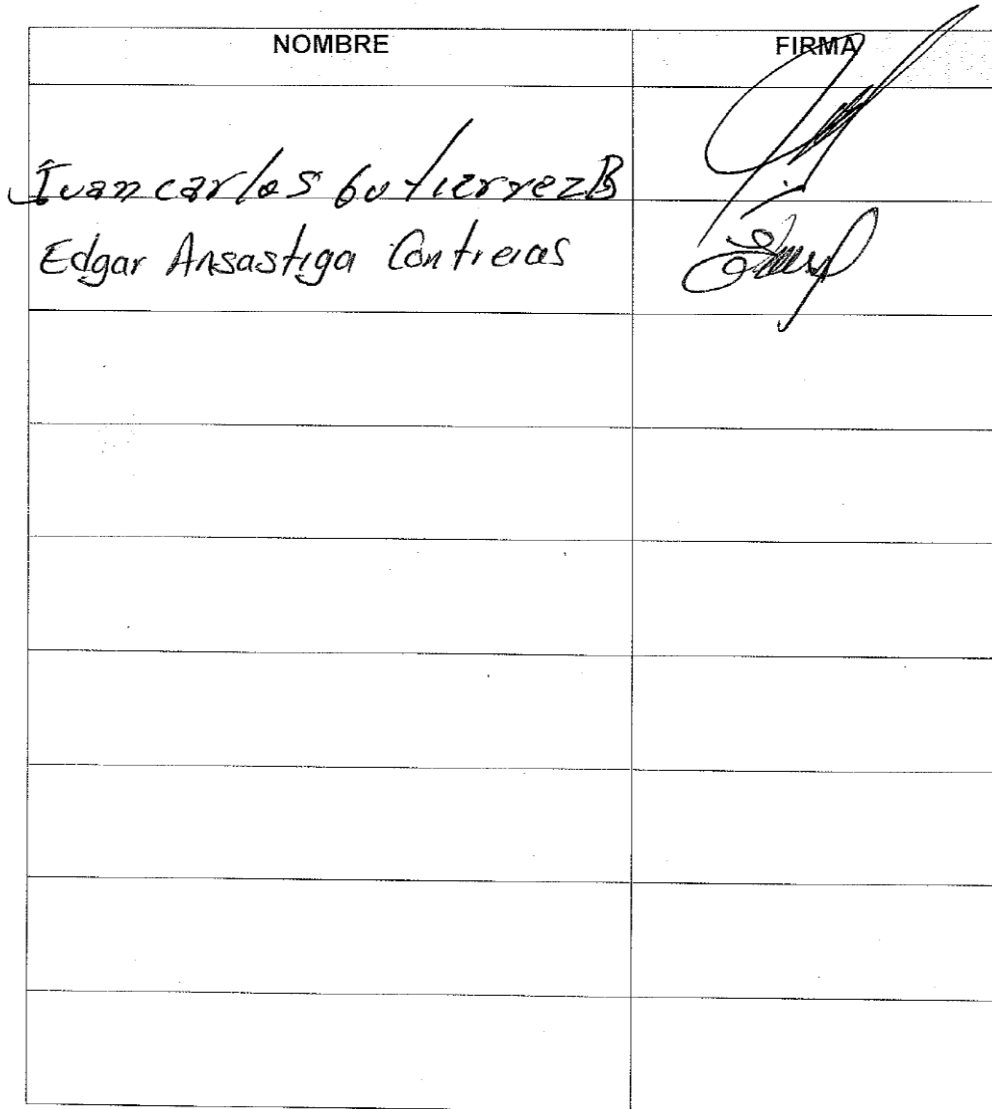 NOMBRE FIRMA
Juan carlos Gutierrez B
Edgar Ansastiga Contreras